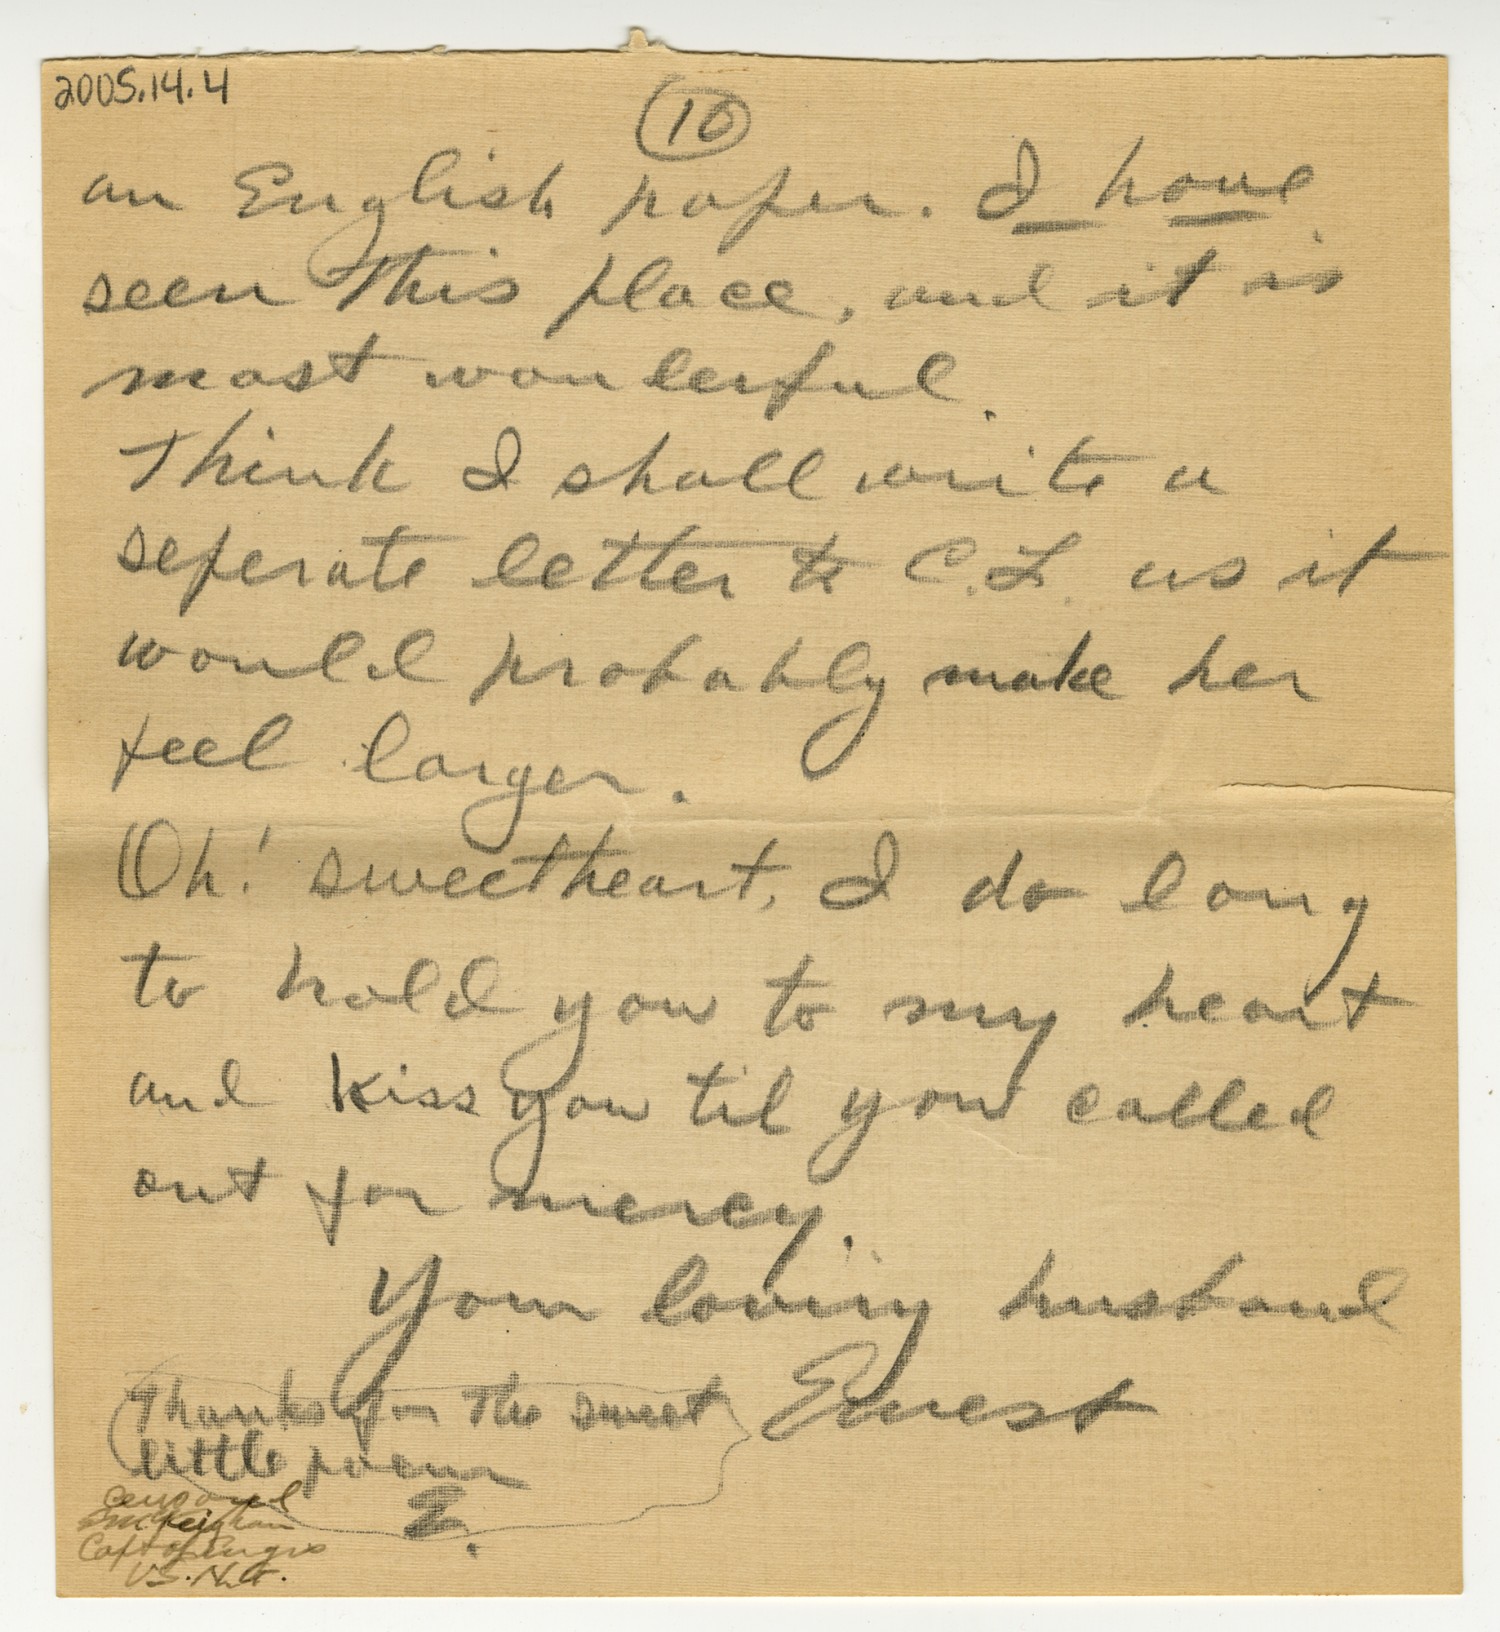 2005.14.4
10
an English paper. I have
seen this place, and it is
most wonderful.
Think I shall write a
seperate letter to C.L. as it
would probably make her
feel larger.
Oh! sweetheart, I do long
to hold you to my heart
and kiss you til you called
out for mercy.
Your loving husband
Ernest
Thanks for the sweet
little poem
E.
Censored
Capt of Engrs